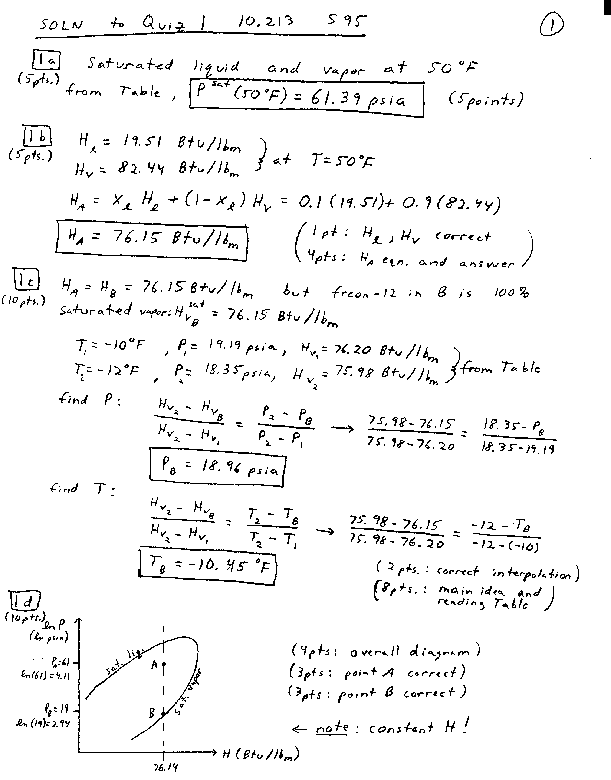 SOLN to Quiz 1 10.213 S95
1
1a Saturated liquid and vapor at 50°F
(5pts.) from Table, P^sat (50°F) = 61.39 psia (5points)
1b H_l = 19.51 Btu/lbm
(5pts.) H_v = 82.44 Btu/lbm } at T=50°F
H_A = X_l H_l + (1-X_l) H_v = 0.1(19.51) + 0.9(82.44)
H_A = 76.15 Btu/lbm
(1pt: H_l, H_v correct
4pts: H_A eqn. and answer)
1c H_A = H_B = 76.15 Btu/lbm but freon-12 in B is 100%
(10pts.) saturated vapor: H_vB^sat = 76.15 Btu/lbm
T_1 = -10°F, P_1 = 19.19 psia, H_v1 = 76.20 Btu/lbm
T_2 = -12°F, P_2 = 18.35 psia, H_v2 = 75.98 Btu/lbm } from Table
find P:
(H_v2 - H_vB)/(H_v2 - H_v1) = (P_2 - P_B)/(P_2 - P_1) → (75.98-76.15)/(75.98-76.20) = (18.35-P_B)/(18.35-19.19)
P_B = 18.96 psia
find T:
(H_v2 - H_vB)/(H_v2 - H_v1) = (T_2 - T_B)/(T_2 - T_1) → (75.98-76.15)/(75.98-76.20) = (-12-T_B)/(-12-(-10))
T_B = -10.45°F
(2pts.: correct interpolation)
(8pts.: main idea and
reading Table)
1d
(10pts.) ln P
(ln psia)
P_A=61
ln(61)=4.11
P_B=19
ln(19)=2.94
sat. liq.
A
B
sat. vapor
H (Btu/lbm)
76.14
(4pts: overall diagram)
(3pts: point A correct)
(3pts: point B correct)
← note: constant H!